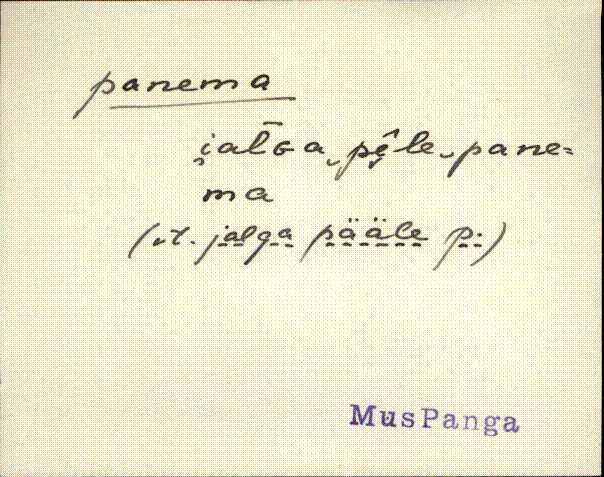 panema
i̯al̄ɢa‿pę̂le‿pane-
ma
(vt. jalga pääle p.)
MusPanga